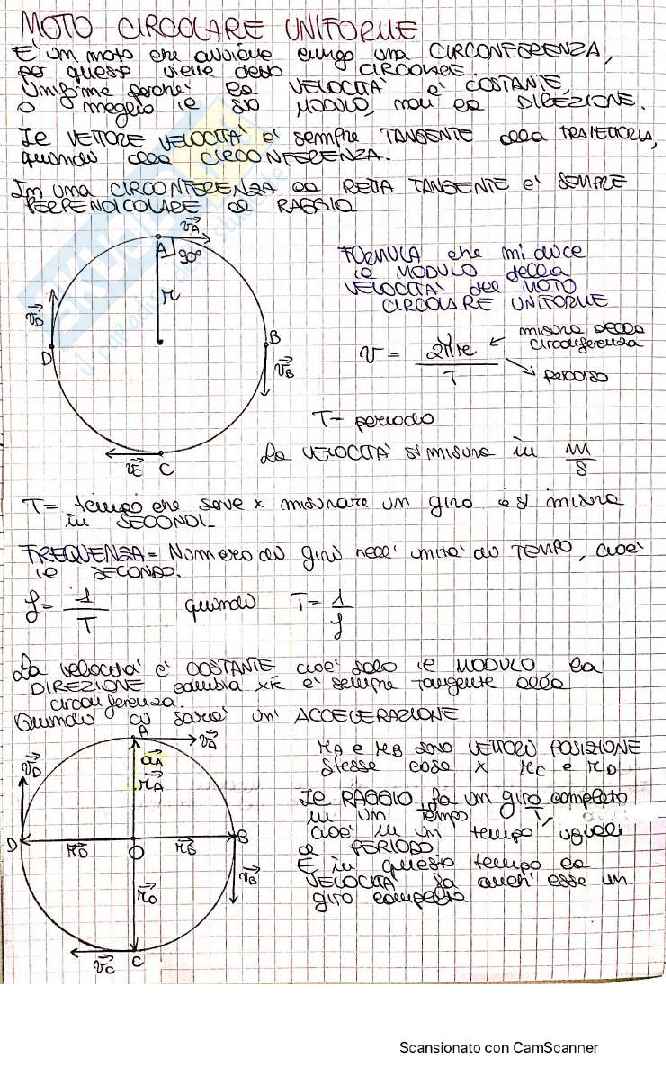 MOTO CIRCOLARE UNIFORME
È un moto che avviene lungo una CIRCONFERENZA,
per questo viene detto CIRCOLARE.
Uniforme perché la VELOCITÀ è COSTANTE,
o meglio il suo MODULO, non la DIREZIONE.
Il VETTORE VELOCITÀ è sempre TANGENTE alla TRAIETTORIA,
quindi alla CIRCONFERENZA.
In una CIRCONFERENZA la RETTA TANGENTE è SEMPRE
PERPENDICOLARE al RAGGIO
vA
A
90°
r
vD
D
B
vB
vC
C
FORMULA che mi dice
il MODULO della
VELOCITÀ del MOTO
CIRCOLARE UNIFORME
v = 2πr / T
misura della
circonferenza
periodo
T= periodo
La VELOCITÀ si misura in m/s
T= tempo che serve x misurare un giro e si misura
in SECONDI.
FREQUENZA = Numero di giri nell'unità di TEMPO, cioè
il SECONDO.
f= 1/T quindi T= 1/f
La velocità è COSTANTE cioè solo il MODULO la
DIREZIONE cambia xk è sempre tangente alla
circonferenza.
Quindi ci sarà un'ACCELERAZIONE
A
vA
aA
rA
vD
D
rD
O
rB
B
vB
rC
vC
C
rA e rB sono VETTORI POSIZIONE
stessa cosa x rC e rD
Il RAGGIO fa un giro completo
in un tempo T,
cioè in un tempo uguale
al PERIODO
E in questo tempo la
VELOCITÀ fa anch'essa un
giro completo
Scansionato con CamScanner